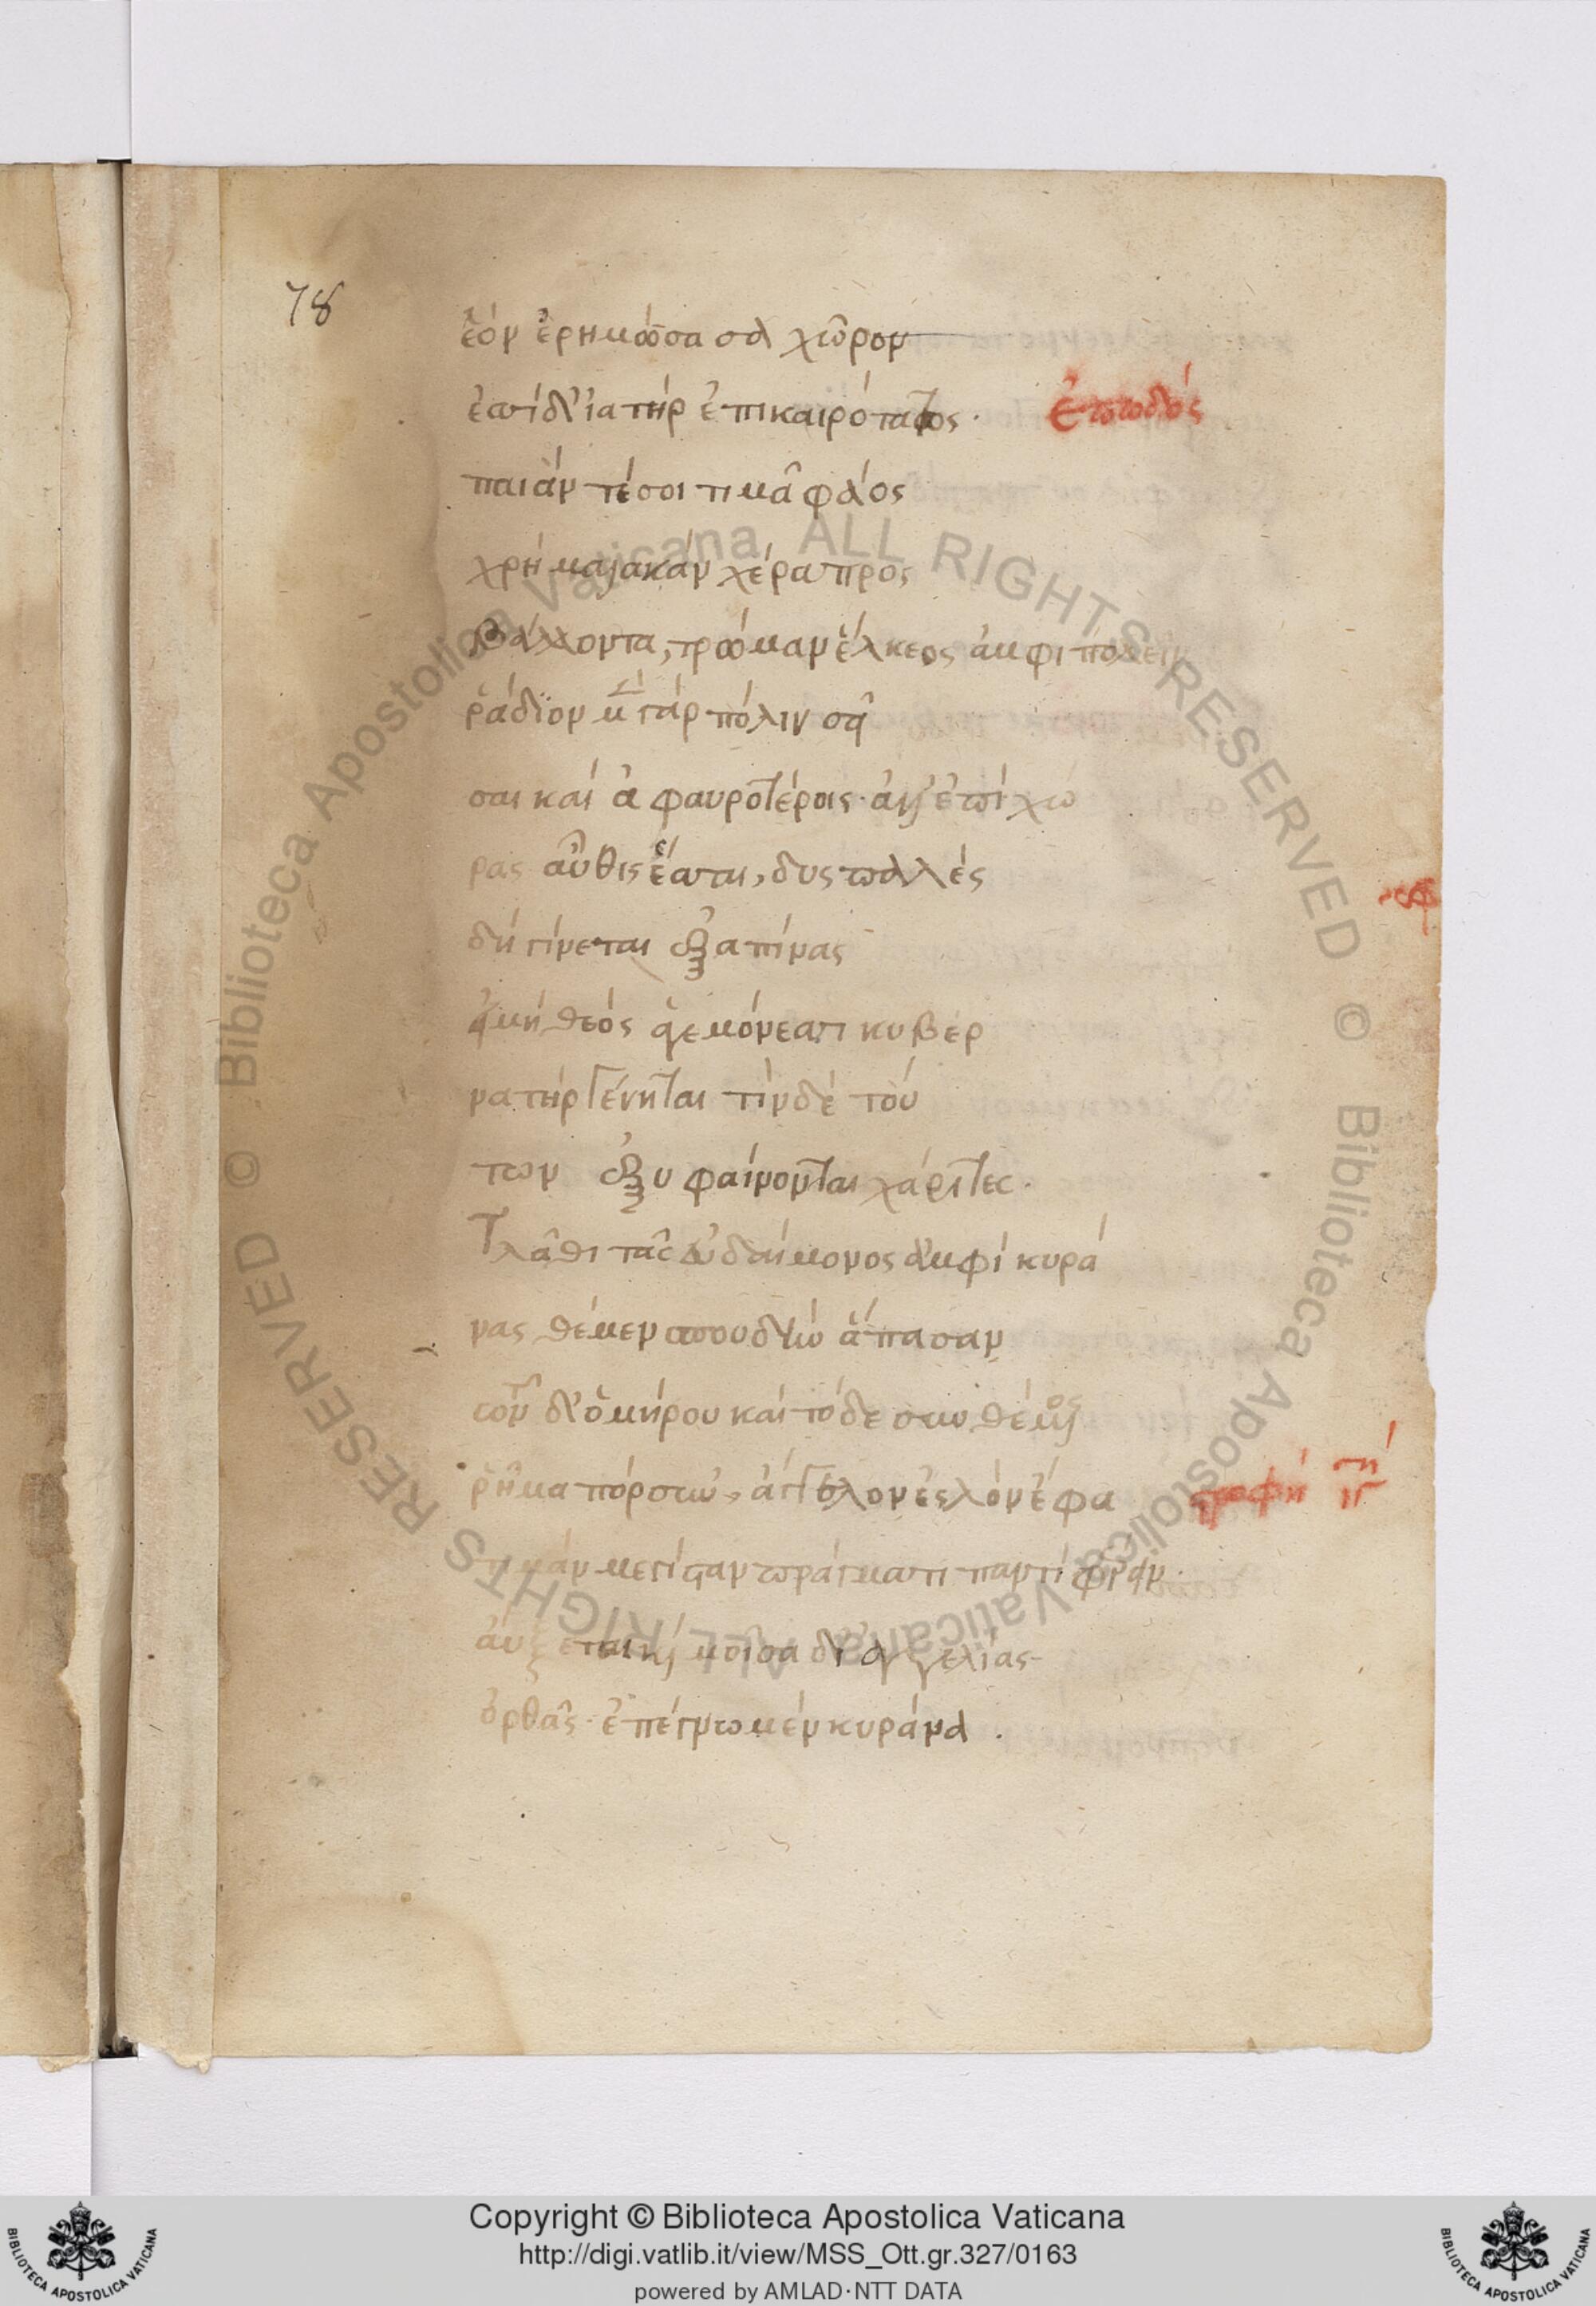 78
ἑόν ἐρημώσασα χῶρον
ἐσσίδ' ἰατήρ ἐπικαιρότατος· ἐπωδός
παιάν τέ σοι τιμᾶ φάος
χρή μαλακάν χέρα προς
βάλλοντα, τρώμαν ἕλκεος ἀμφιπολεῖν
ῥάδϊον μὲν γάρ πόλιν σεῖ
σαι καί ἀφαυροτέροις· ἀλλ' ἐπί χώ
ρας αὖθις ἕσσαι, δυςπαλές
δή γίνεται ἐξαπίνας
εἰ μή θεός ἁγεμόνεσσι κυβερ
νατήρ γένηται τίν δέ τού
των ἐξυφαίνονται χάριτες·
Τλᾶθι τᾶς εὐδαίμονος ἀμφί κυρά
νας θέμεν σπουδάν ἅπασαν
τῶν δ' ὁμήρου καί τόδε συνθέμενος
ῥῆμα πόρσυν, ἄγγελον ἐςλόν ἔφα στροφή
τιμάν μεγίσταν πράγματι παντί φέρειν·
αὔξεται καί μοῖσα δι' ἀγγελίας
ὀρθᾶς· ἐπέγνω μέν κυράνα ·
Copyright © Biblioteca Apostolica Vaticana
http://digi.vatlib.it/view/MSS_Ott.gr.327/0163
powered by AMLAD·NTT DATA
© Biblioteca Apostolica Vaticana, ALL RIGHTS RESERVED
© Biblioteca Apostolica Vaticana, ALL RIGHTS RESERVED
BIBLIOTECA APOSTOLICA VATICANA
BIBLIOTECA APOSTOLICA VATICANA